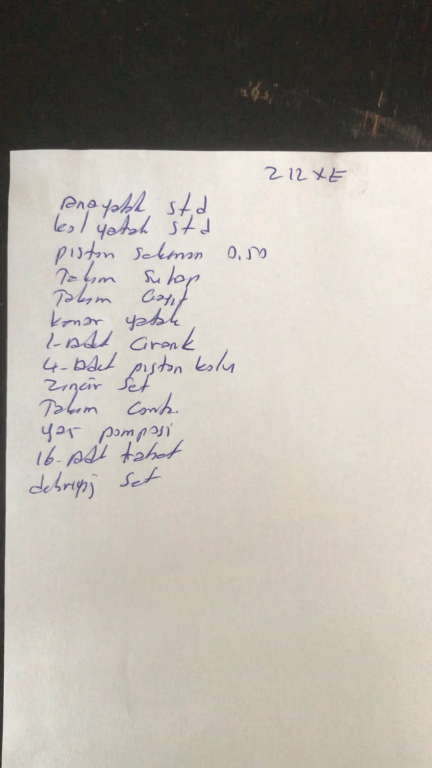 Z12XE
anayatak std
kol yatak std
piston sekman 0.50
Takım Subap
Takım Gayt
kenar yatak
1-Adet Crank
4-Adet piston kolu
Zincir Set
Takım Conta
yağ pompasi
16-Adt
debriyaj Set